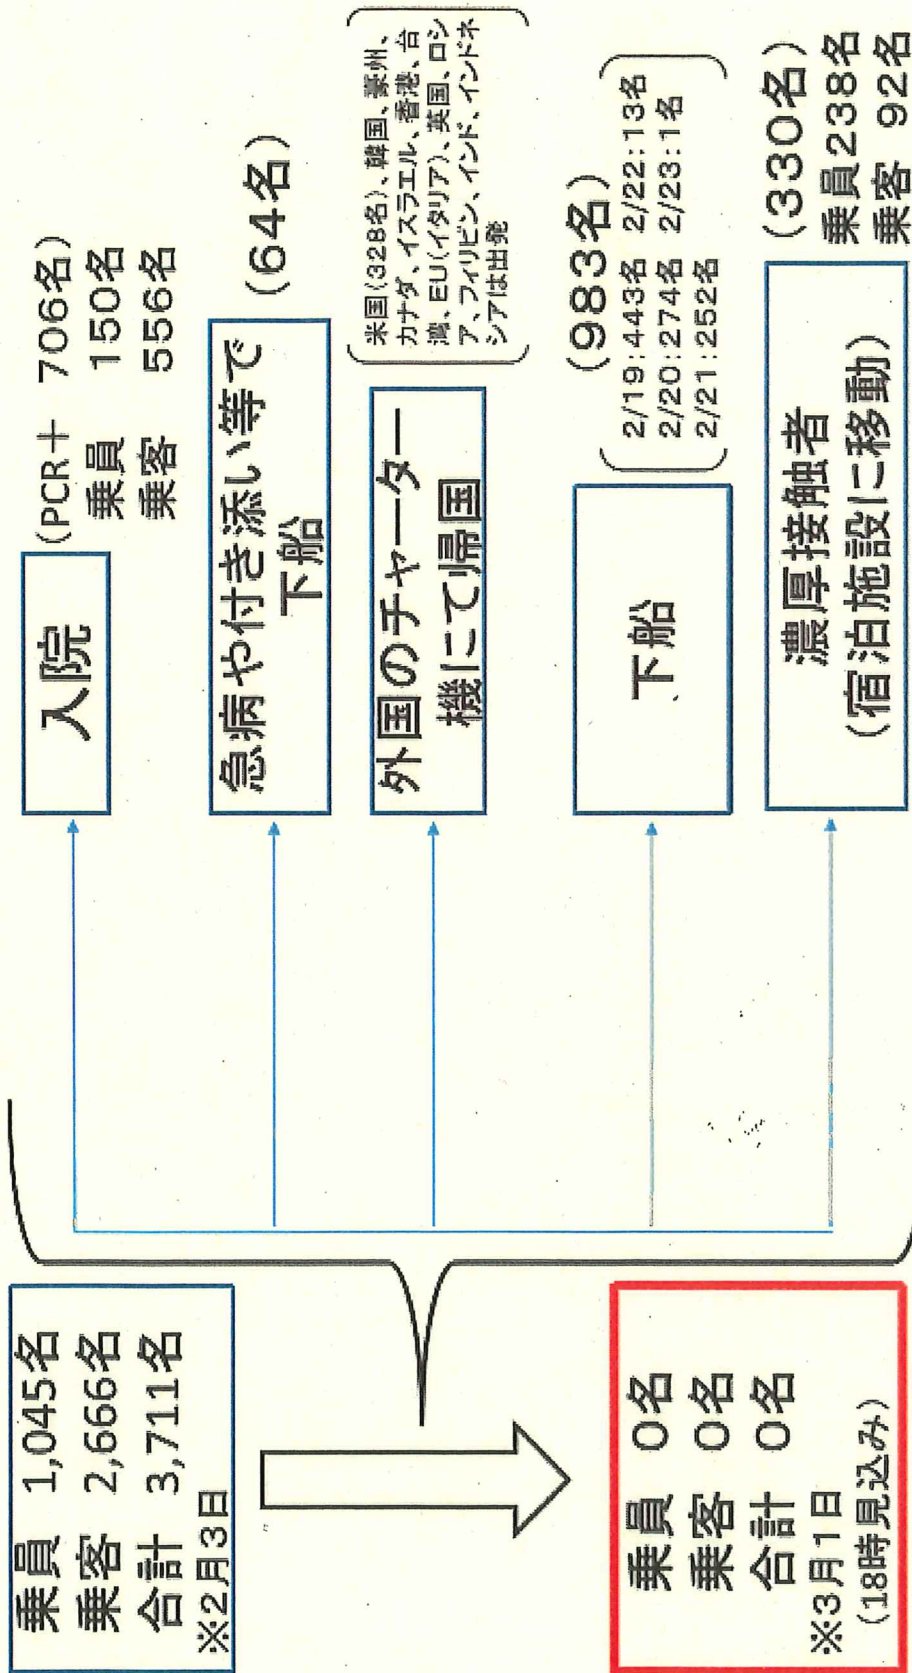 乗員 1,045名
乗客 2,666名
合計 3,711名
※2月3日
乗員 0名
乗客 0名
合計 0名
※3月1日
(18時見込み)
入院
(PCR+ 706名)
乗員 150名
乗客 556名
急病や付き添い等で
下船
(64名)
外国のチャーター
機にて帰国
米国(328名)、韓国、豪州、
カナダ、イスラエル、香港、台
湾、EU(イタリア)、英国、ロシ
ア、フィリピン、インド、インドネ
シアは出発
下船
(983名)
2/19:443名 2/22:13名
2/20:274名 2/23:1名
2/21:252名
濃厚接触者
(宿泊施設に移動)
(330名)
乗員238名
乗客 92名